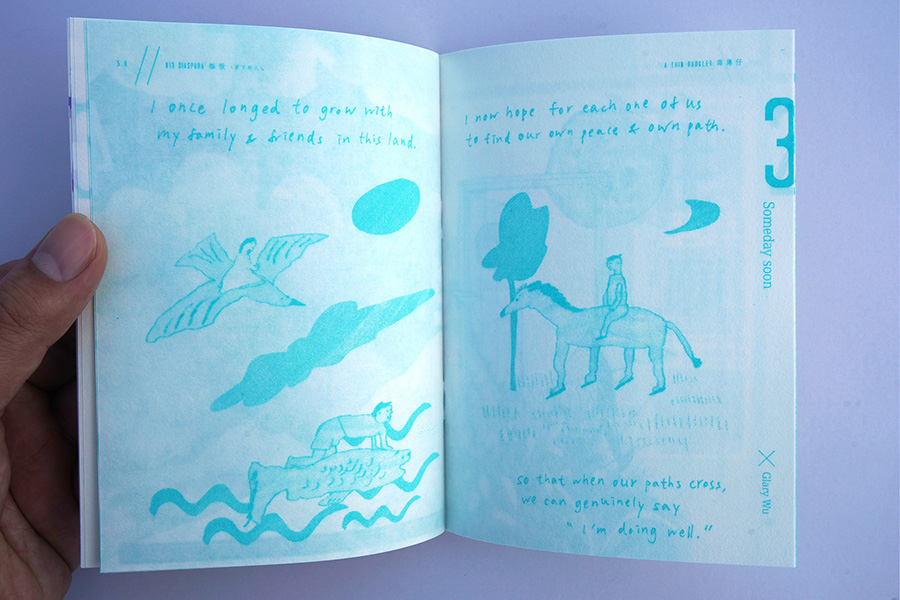 I once longed to grow with
my family & friends in this land.
A THIN DANGLER
I now hope for each one of us
to find our own peace & own path.
3
Someday soon
so that when our paths cross,
we can genuinely say
"I'm doing well."
× Glary Wu